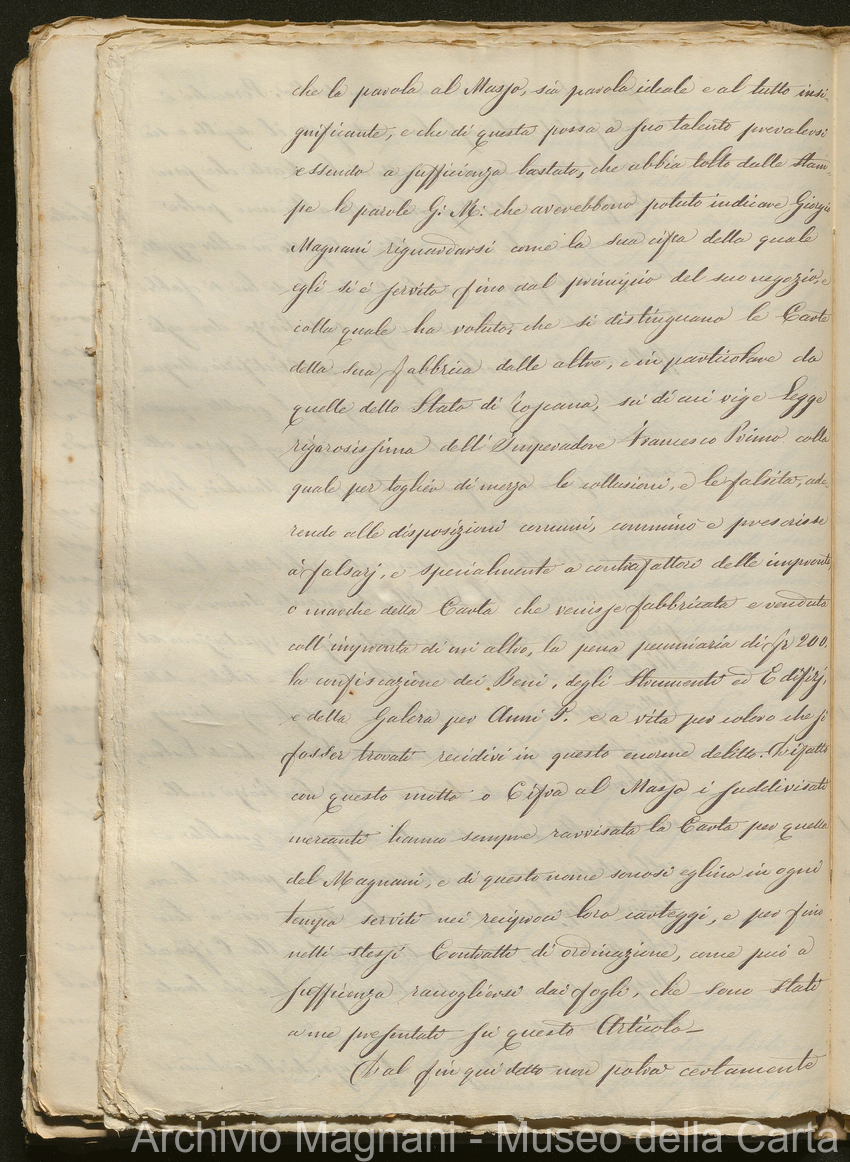 che la parola al Masso, sia parola ideale e al tutto insi-
gnificante, e che di questa possa a suo talento prevalersi
essendo a sufficienza bastato, che abbia tolto dalle stam-
pe le parole G: M: che averebbono potuto indicare Giorgio
Magnani riguardarsi come la sua cifra della quale
egli si è servito fino dal principio del suo negozio, e
colla quale ha voluto, che si distinguano le Carte
della sua fabbrica dalle altre, e in particolare da
quelle dello Stato di Toscana, su di cui vige Legge
rigorosissima dell'Imperadore Francesco Primo colla
quale per toglier di mezzo le collusioni, e le falsità, ade-
rendo alle disposizioni comuni, comminò e prescrisse
a' falsarj, e specialmente a contrafattori delle impronte,
o marche della Carta che venisse fabbricata e venduta
coll'impronta di un altro, la pena pecuniaria di 200.
la confiscazione dei Beni, degli Strumenti ed Edifizj,
e della Galera per Anni e a vita per coloro che si
fosser trovati recidivi in questo enorme delitto. Difatti
con questo motto o Cifra al Masso i suddivisati
mercanti hanno sempre ravvisata la Carta per quella
del Magnani, e di questo nome sonosi eglino in ogni
tempo serviti nei reciproci loro carteggi, e per fino
nelli stessi Contratti di ordinazione, come può a
sufficienza raccogliersi dai fogli, che sono stati
a me presentati su questo Articolo_
Dal fin qui detto non potrà certamente
Archivio Magnani - Museo della Carta